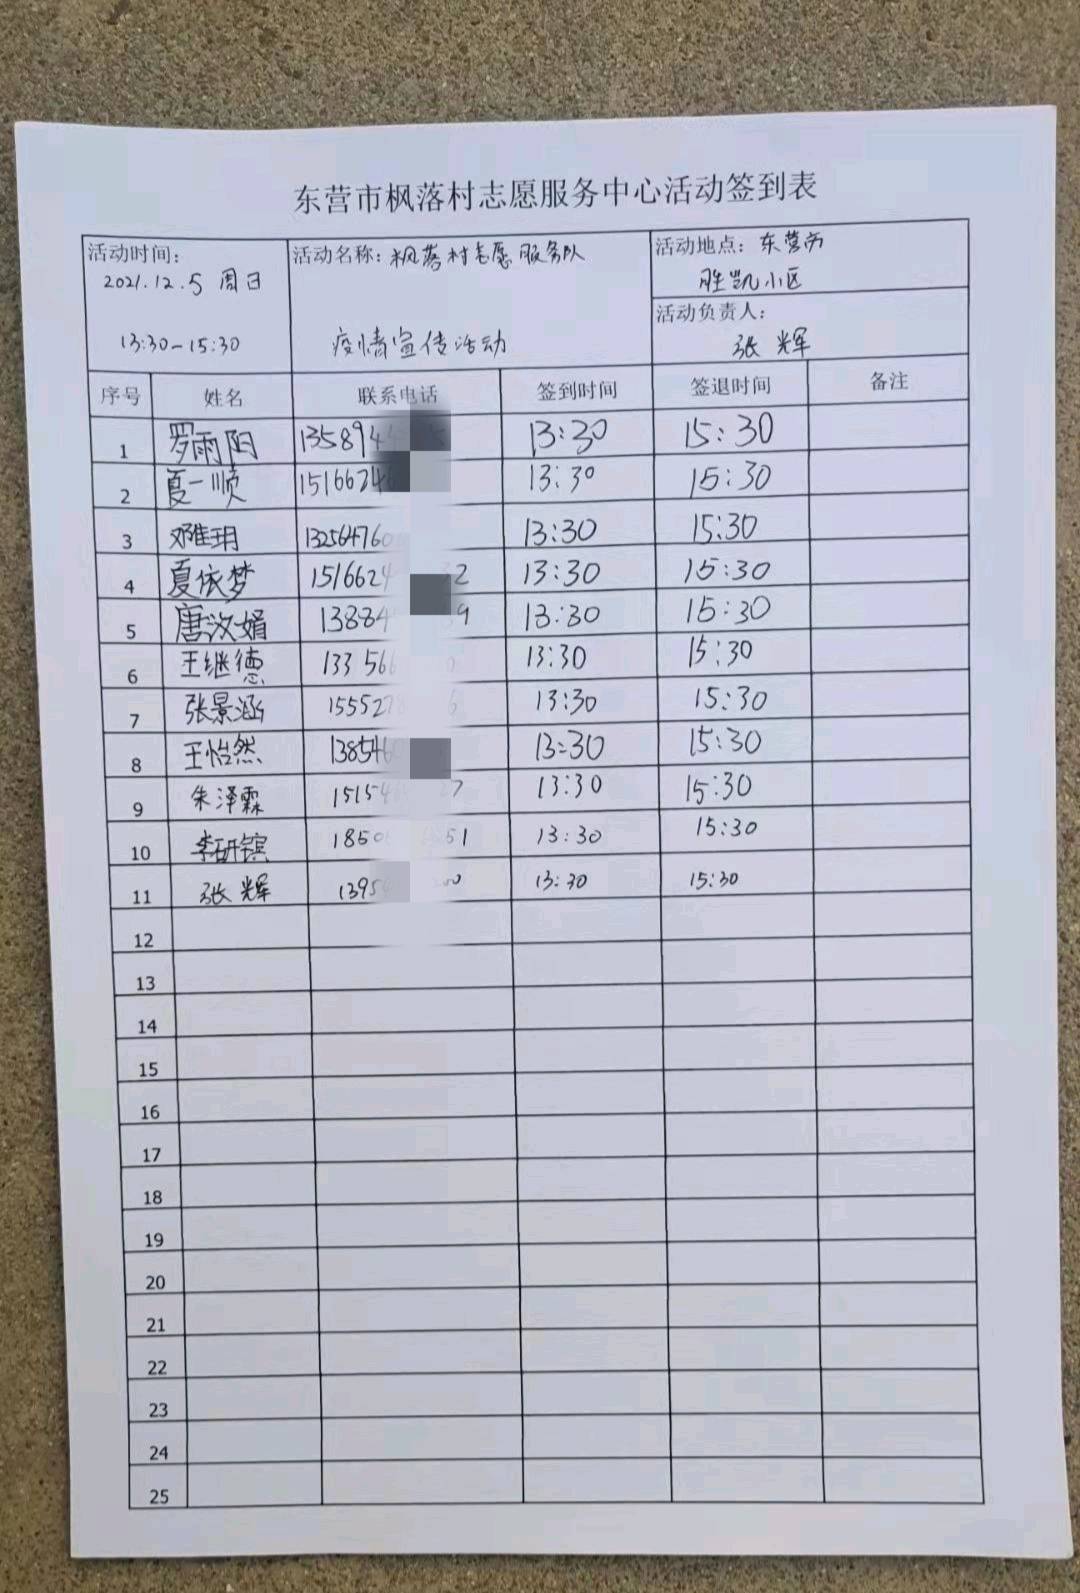 东营市枫落村志愿服务中心活动签到表
活动时间: 2021.12.5 周日
13:30-15:30
活动名称: 枫落村志愿服务队
疫情宣传活动
活动地点: 东营市
胜凯小区
活动负责人:
张辉
序号 姓名 联系电话 签到时间 签退时间 备注
1 罗雨阳 13:30 15:30
2 夏一顺 13:30 15:30
3 邓雅玥 13:30 15:30
4 夏依梦 13:30 15:30
5 唐汝婧 13:30 15:30
6 王继德 13:30 15:30
7 张景涵 13:30 15:30
8 王怡然 13:30 15:30
9 朱泽霖 13:30 15:30
10 李研镔 13:30 15:30
11 张辉 13:30 15:30
12
13
14
15
16
17
18
19
20
21
22
23
24
25